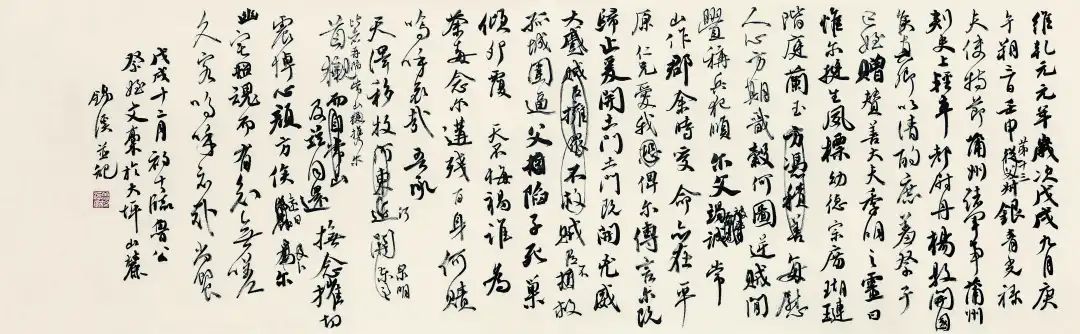 維乾元元年歲次戊戌九月庚
午朔三日壬申第十三銀青光祿
夫使持節蒲州諸軍事蒲州
刺史上輕車都尉丹楊縣開國
侯真卿以清酌庶羞祭于
亡姪贈贊善大夫季明之靈曰
惟爾挺生夙標幼德宗廟瑚璉
階庭蘭玉方憑積善每慰
人心方期戩穀何圖逆賊閒
釁稱兵犯順爾父竭誠常
山作郡余時受命亦在平
原仁兄愛我恐俾爾傳言爾既
歸止爰開土門土門既開凶威
大蹙賊臣擁眾不救賊臣不救
孤城圍逼父擒陷子死巢
傾卵覆天不悔禍誰為
荼毒念爾遘殘百身何贖
嗚呼哀哉吾承
天澤移牧河東近河關泉明
常山攜爾
首櫬及茲同還撫念摧切
震悼心顏方俟遠日卜爾
幽宅魂而有知無嗟
久客嗚呼哀哉尚饗
戊戌十二月初七臨魯公
祭姪文稾於大坪山麓
錫溪並記